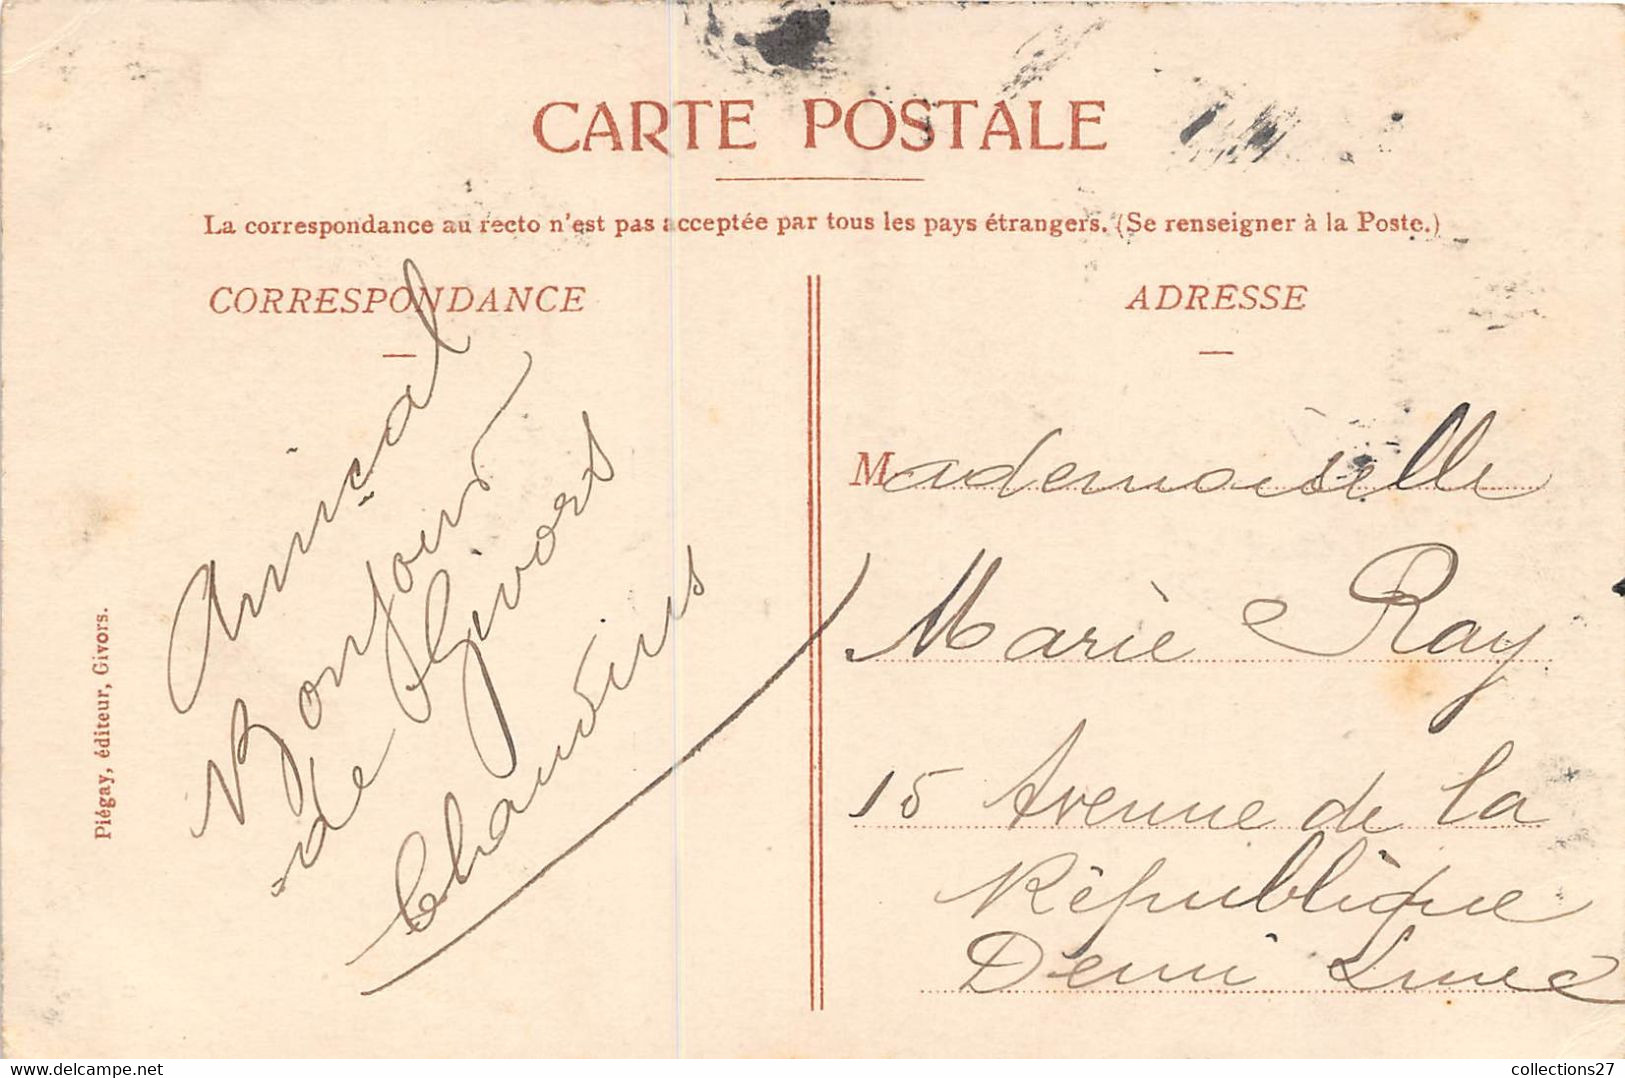 CARTE POSTALE
La correspondance au recto n'est pas acceptée par tous les pays étrangers. (Se renseigner à la Poste.)
CORRESPONDANCE
Amical
Bonjour
de Givors
Piégay, éditeur, Givors.
ADRESSE
Mademoiselle
Marie Ray
15 Avenue de la
République
Demi Lune
www.delcampe.net
collections27